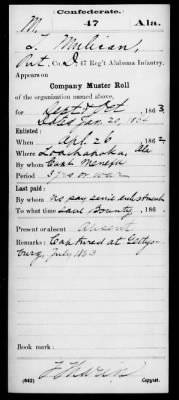 Confederate.
M. 47 Ala.
J. Milican,
Pvt, Co. I, 47 Reg't Alabama Infantry.
Appears on
Company Muster Roll
of the organization named above,
for Sept & Oct, 1863.
Dated Jan. 20, 1864
Enlisted:
When Apl. 26, 1862.
Where Loachapoka, Ala
By whom Capt. Menefee
Period 3 yrs or war
Last paid:
By whom no pay since enlistment
To what time save Bounty, 186 .
Present or absent Absent
Remarks: Captured at Gettys-
burg, July 1863
Book mark:
(642) Copyist.